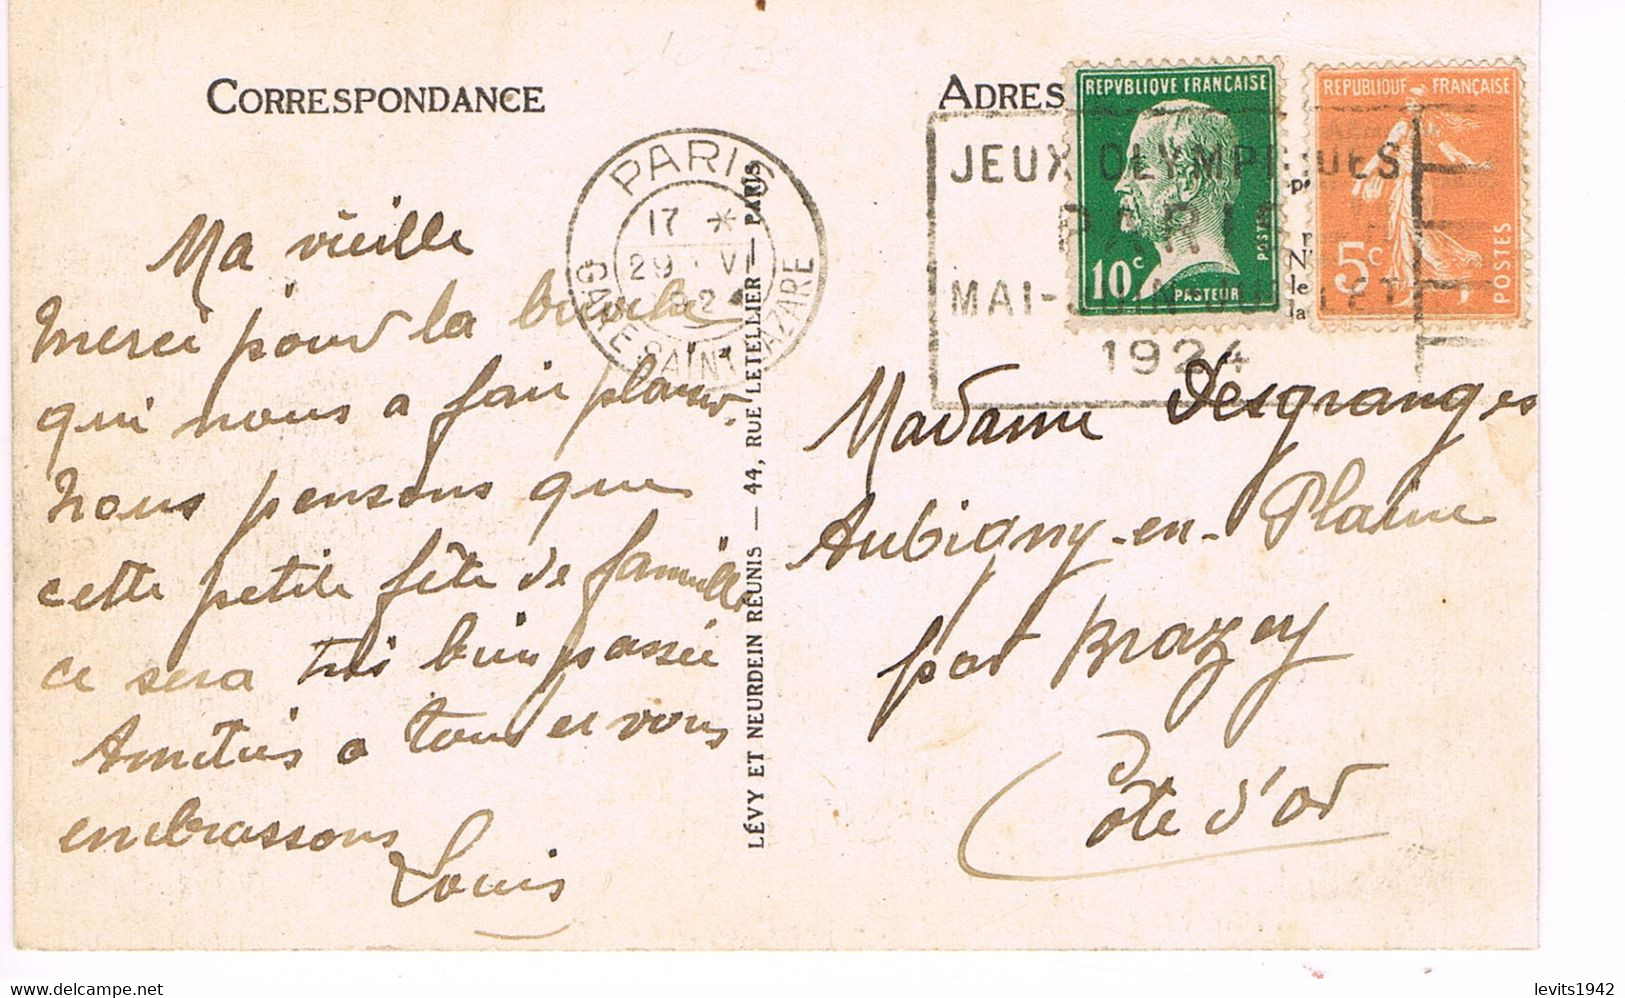 CORRESPONDANCE
ADRES
PARIS
17 *
29 VI
2
GARE SAINT LAZARE
JEUX OLYMPIQUES
PARIS
MAI-JUIN-JUILLET
1924
REPVBLIQVE FRANÇAISE
10c
POSTES
PASTEUR
REPUBLIQUE FRANÇAISE
5c
POSTES
Ma vieille
Merci pour la
qui nous a fair plaisir.
Nous pensons que
cette petite fête de famille
ce sera très bien passée
Amitiés a tous et vous
embrassons
Louis
LÉVY ET NEURDEIN RÉUNIS — 44, RUE LETELLIER — PARIS
Madame Desgranges
Aubigny-en-Plaine
par Brazey
Côte d'or
levits1942